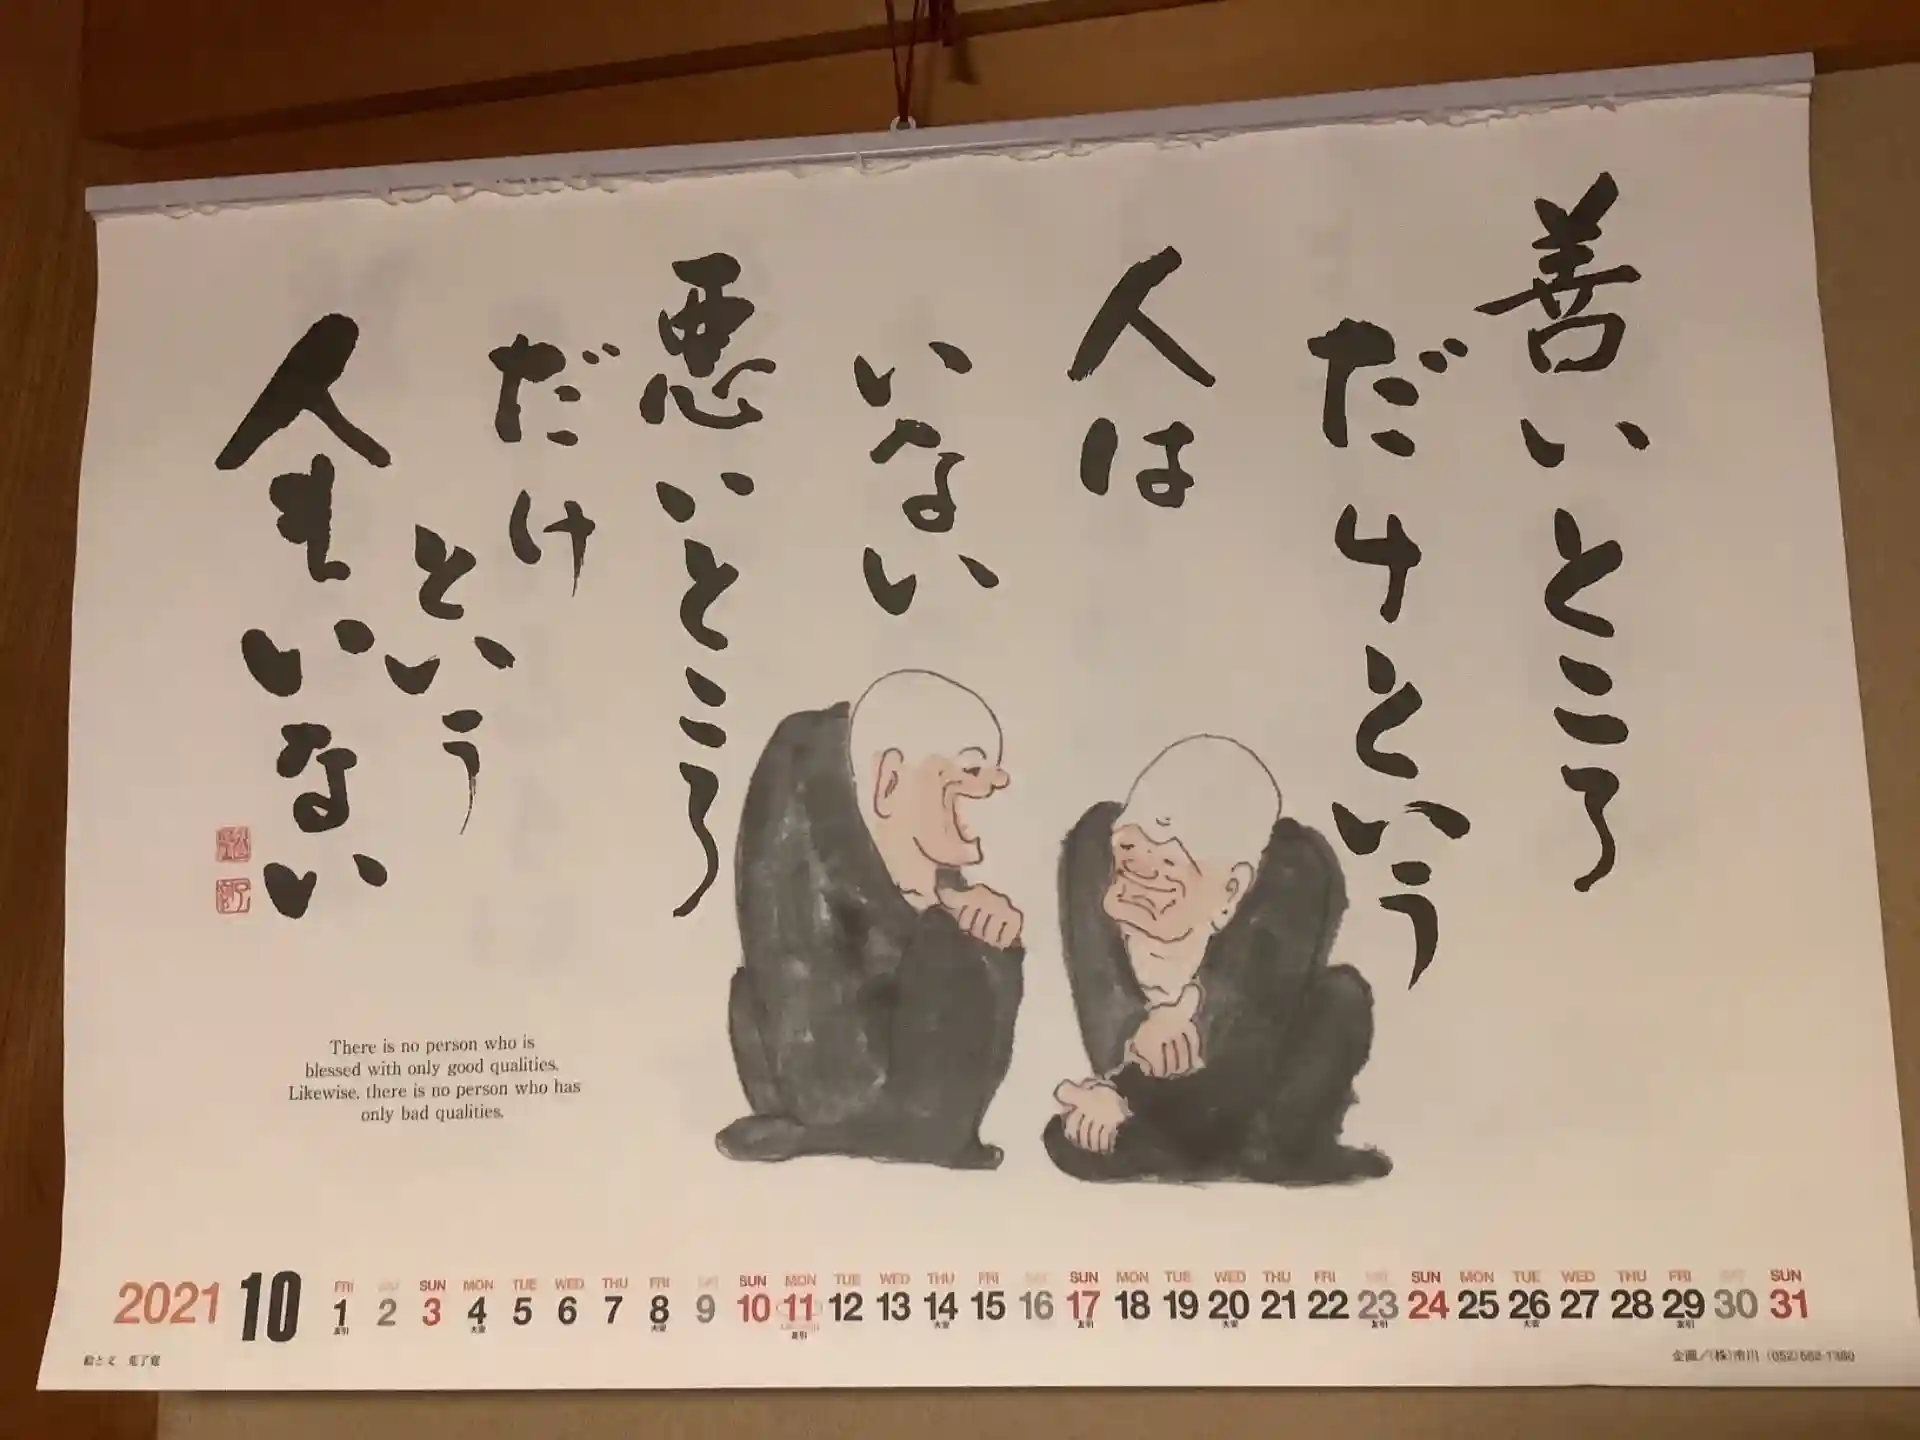 善いところ
だけという
人は
いない
悪いところ
だけ
という
人もいない
There is no person who is
blessed with only good qualities.
Likewise, there is no person who has
only bad qualities.
2021 10
FRI SUN MON TUE WED THU FRI SUN MON TUE WED THU FRI SUN MON TUE WED THU FRI SUN MON TUE WED THU FRI SUN
1 2 3 4 5 6 7 8 9 10 11 12 13 14 15 16 17 18 19 20 21 22 23 24 25 26 27 28 29 30 31
友引 大安 大安 友引 大安 友引 大安 友引 大安 友引
絵と文
企画/(株)市川